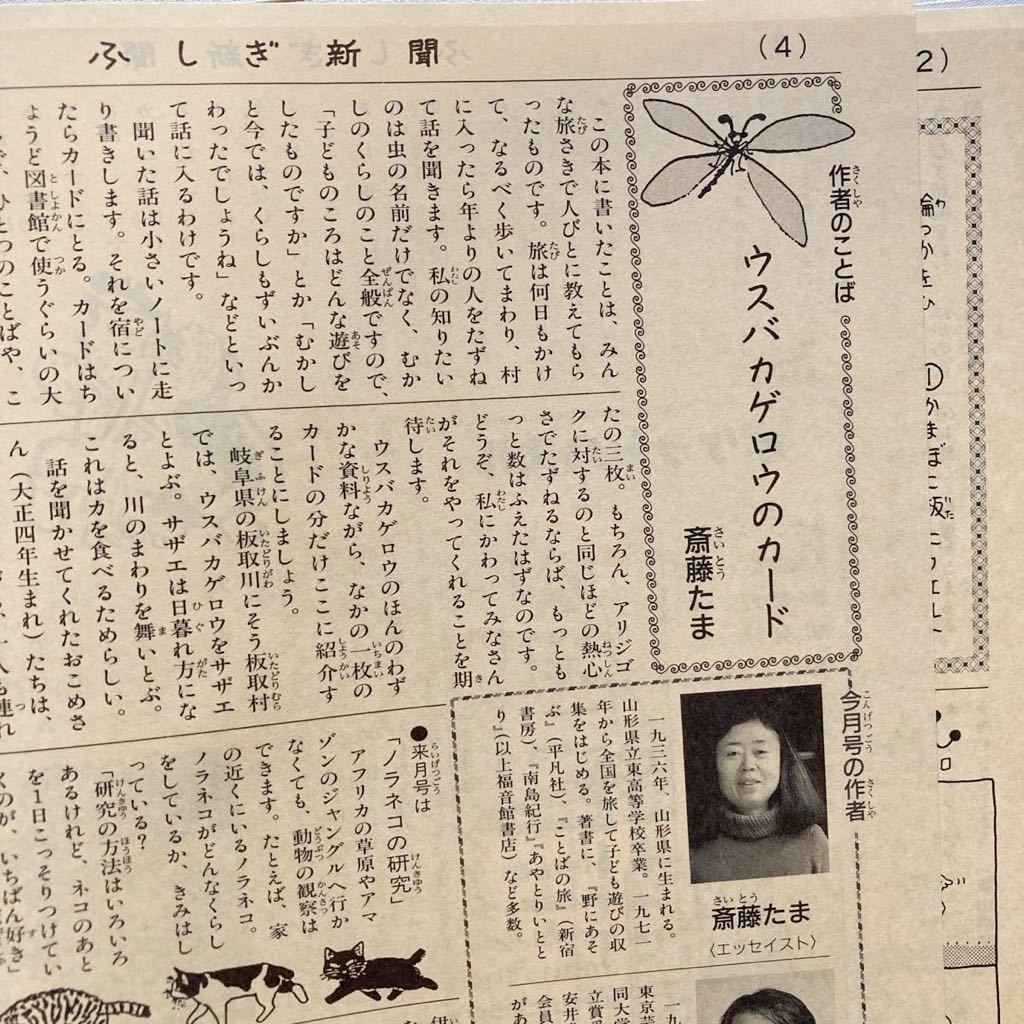 ふしぎ新聞
(4)
作者のことば
ウスバカゲロウのカード
斎藤たま
この本に書いたことは、みん
な旅さきで人びとに教えてもら
ったものです。旅は何日もかけ
て、なるべく歩いてまわり、村
に入ったら年よりの人をたずね
て話を聞きます。私の知りたい
のは虫の名前だけでなく、むか
しのくらしのこと全般ですので、
「子どものころはどんな遊びを
したものですか」とか「むかし
と今では、くらしもずいぶんか
わったでしょうね」などといっ
て話に入るわけです。
聞いた話は小さいノートに走
り書きします。それを宿につい
たらカードにとる。カードはち
ょうど図書館で使うぐらいの大
たの三枚。もちろん、アリジゴ
クに対するのと同じほどの熱心
さでたずねるならば、もっとも
っと数はふえたはずなのです。
どうぞ、私にかわってみなさん
がそれをやってくれることを期
待します。
ウスバカゲロウのほんのわず
かな資料ながら、なかの一枚の
カードの分だけここに紹介す
ることにしましょう。
岐阜県の板取川にそう板取村
では、ウスバカゲロウをサザエ
とよぶ。サザエは日暮れ方にな
ると、川のまわりを舞いとぶ。
これはカを食べるためらしい。
話を聞かせてくれたおこめさ
ん(大正四年生まれ)たちは、
今月号の作者
斎藤たま
〈エッセイスト〉
一九三六年、山形県に生まれる。
山形県立東高等学校卒業。一九七一
年から全国を旅して子ども遊びの収
集をはじめる。著書に、『野にあそ
ぶ』(平凡社)、『ことばの旅』(新宿
書房)、『南島紀行』『あやとりいとと
り』(以上福音館書店)など多数。
●来月号は
「ノラネコの研究」
アフリカの草原やアマ
ゾンのジャングルへ行か
なくても、動物の観察は
できます。たとえば、家
の近くにいるノラネコ。
ノラネコがどんなくらし
をしているか、きみはし
っている?
「研究の方法はいろいろ
あるけれど、ネコのあと
を1日こっそりつけてい
くのが、いちばん好き」
2)